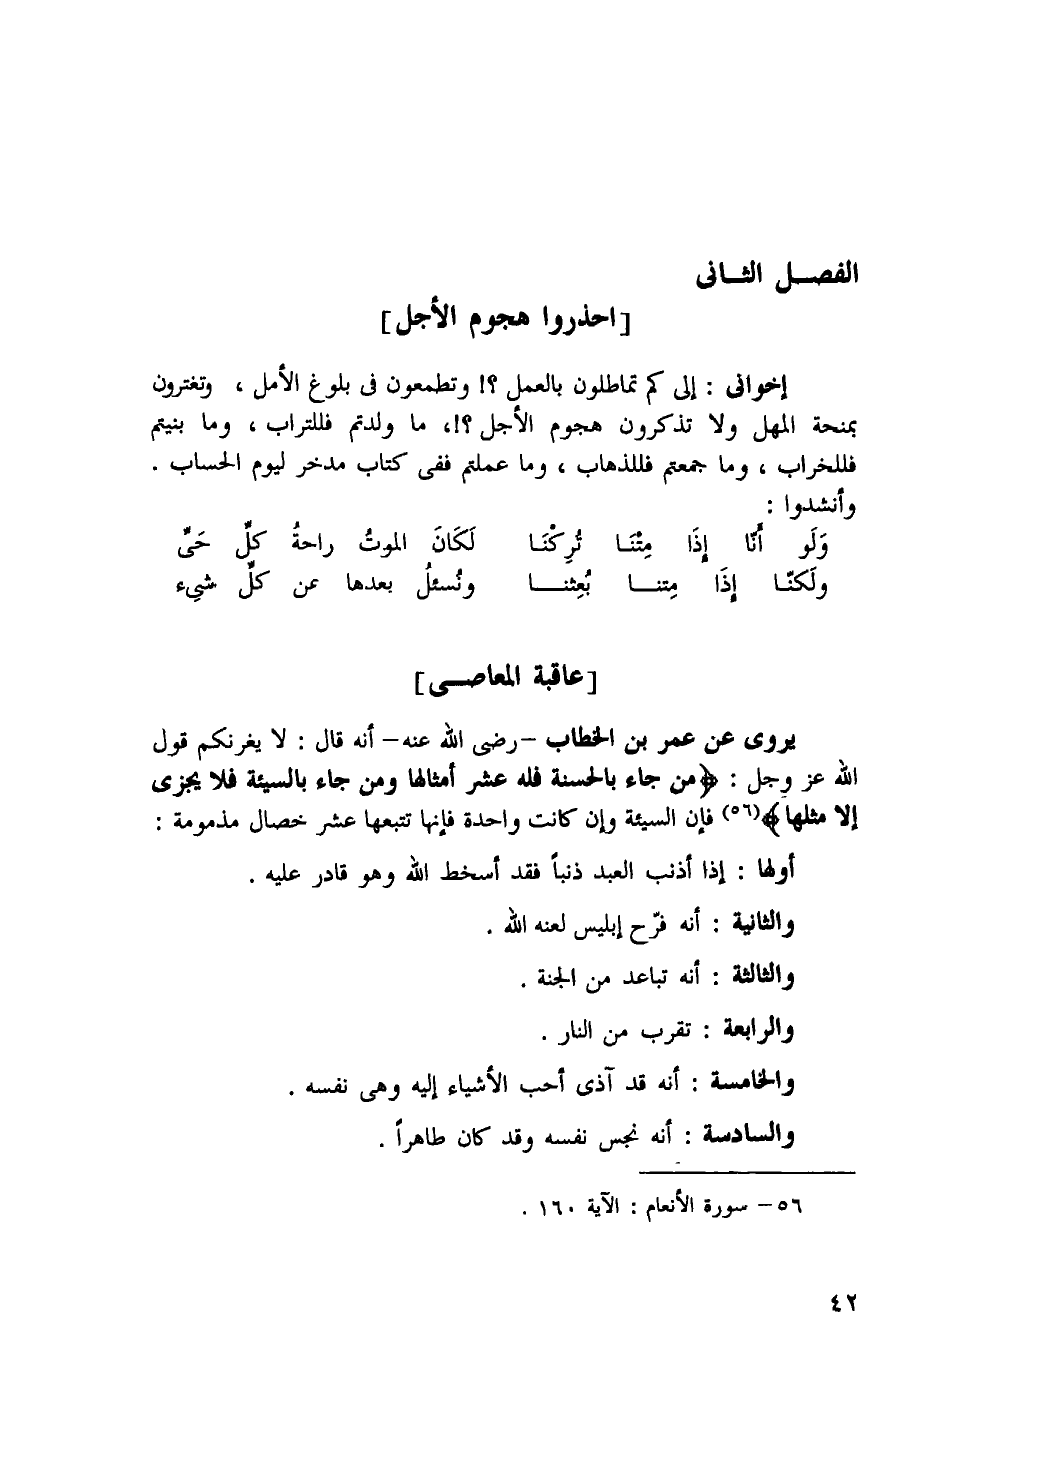 الفصــل الثــانى
[احذروا هجوم الأجل]
إخوانى : إلى كم تماطلون بالعمل ؟! وتطمعون فى بلوغ الأمل ، وتغترون
بمنحة المهل ولا تذكرون هجوم الأجل ؟!، ما ولدتم فللتراب ، وما بنيتم
فللخراب ، وما جمعتم فللذهاب ، وما عملتم ففى كتاب مدخر ليوم الحساب .
وأنشدوا :
وَلَو أَنّا إِذَا مِتْنَـا تُرِكْنَـا لَكَانَ الموتُ راحةُ كلِّ حَىٍّ
ولَكنّـا إِذَا مِتنــا بُعِثنـــا ونُسئلُ بعدها عن كلِّ شىِء
[عاقبة المعاصــى]
يروى عن عمر بن الخطاب –رضى الله عنه– أنه قال : لا يغرنكم قول
الله عز وجل : ﴿من جاء بالحسنة فله عشر أمثالها ومن جاء بالسيئة فلا يجزى
إلا مثلها﴾(٥٦) فإن السيئة وإن كانت واحدة فإنها تتبعها عشر خصال مذمومة :
أولها : إذا أذنب العبد ذنباً فقد أسخط الله وهو قادر عليه .
والثانية : أنه فرّح إبليس لعنه الله .
والثالثة : أنه تباعد من الجنة .
والرابعة : تقرب من النار .
والخامسة : أنه قد آذى أحب الأشياء إليه وهى نفسه .
والسادسة : أنه نجس نفسه وقد كان طاهراً .
٥٦– سورة الأنعام : الآية ١٦٠ .
٤٢